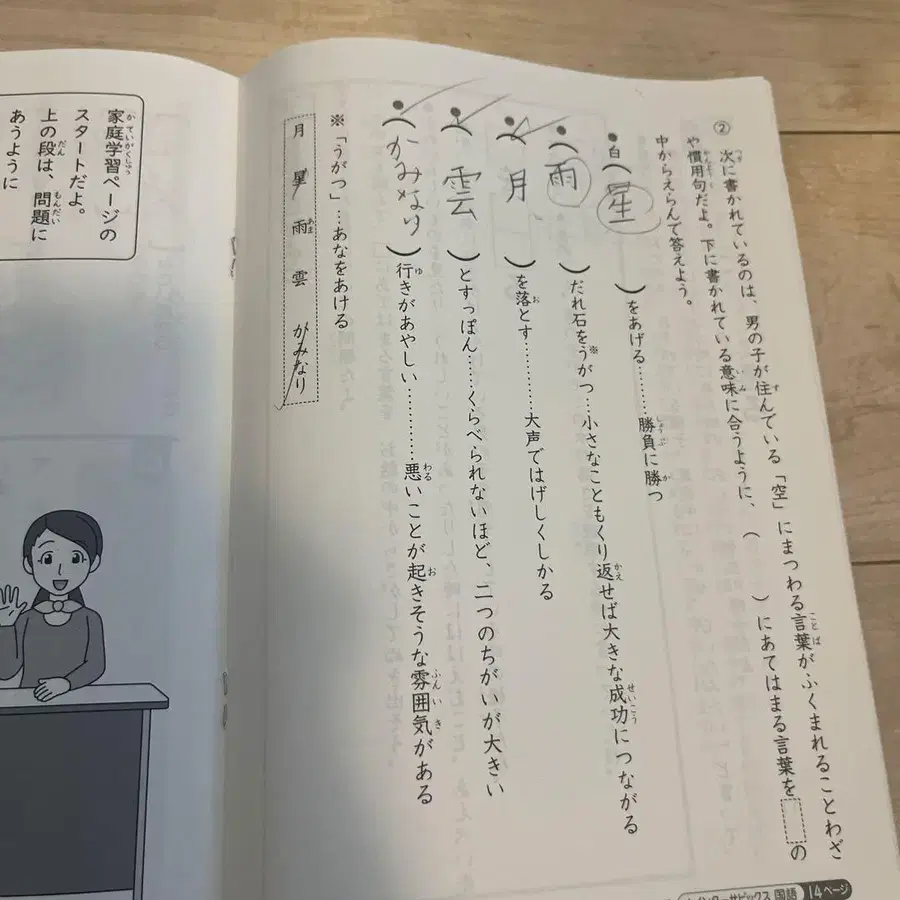 ② 次に書かれているのは、男の子が住んでいる「空」にまつわる言葉がふくまれることわざ
や慣用句だよ。下に書かれている意味に合うように、( )にあてはまる言葉を の
中からえらんで答えよう。
・白(星)をあげる………勝負に勝つ
・(雨)だれ石を※うがつ…小さなこともくり返せば大きな成功につながる
・(月)を落とす………大声ではげしくしかる
・(雲)とすっぽん……くらべられないほど、二つのちがいが大きい
・(かみなり)行きがあやしい…………悪いことが起きそうな雰囲気がある
※「うがつ」…あなをあける
月 星 雨 雲 かみなり
家庭学習ページの
スタートだよ。
上の段は、問題に
あうように
国語 14ページ